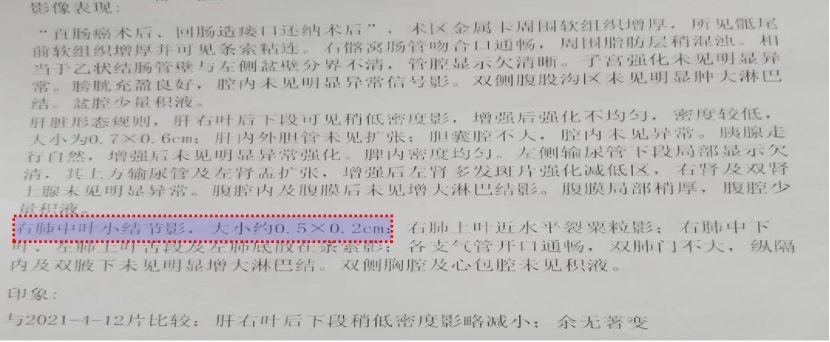 影像表现:
“直肠癌术后、回肠造瘘口还纳术后”，术区金属卡周围软组织增厚，所见骶尾
前软组织增厚并可见条索粘连。右髂窝肠管吻合口通畅，周围脂肪层稍混浊。相
当于乙状结肠管壁与左侧盆壁分界不清，管腔显示欠清晰。子宫强化未见明显异
常。膀胱充盈良好，腔内未见明显异常信号影。双侧腹股沟区未见明显肿大淋巴
结。盆腔少量积液。
肝脏形态规则，肝右叶后下段可见稍低密度影，增强后强化不均匀，密度较低，
大小为0.7×0.6cm；肝内外胆管未见扩张；胆囊腔不大，腔内未见异常。胰腺走
行自然，增强后未见明显异常强化。脾内密度均匀。左侧输尿管下段局部显示欠
清，其上方输尿管及左肾盂扩张，增强后左肾多发斑片强化减低区，右肾及双肾
上腺未见明显异常。腹腔内及腹膜后未见增大淋巴结影。腹膜局部稍厚，腹腔少
量积液。
右肺中叶小结节影，大小约0.5×0.2cm；右肺上叶近水平裂粟粒影；右肺中下
叶、左肺上叶舌段及左肺底散在条索影；各支气管开口通畅，双肺门不大，纵隔
内及双腋下未见明显增大淋巴结。双侧胸腔及心包腔未见积液。
印象:
与2021-4-12片比较：肝右叶后下段稍低密度影略减小；余无著变